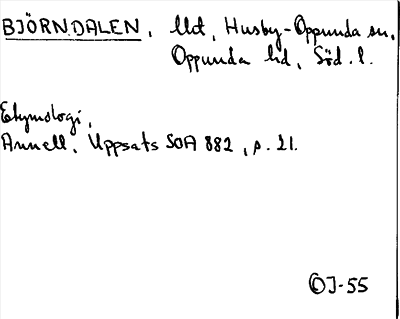 BJÖRNDALEN, Uot, Husby-Oppunda sn,
Oppunda hd, Söd. l.
Etymologi,
Annell, Uppsats SOA 882, p. 21.
OJ-55